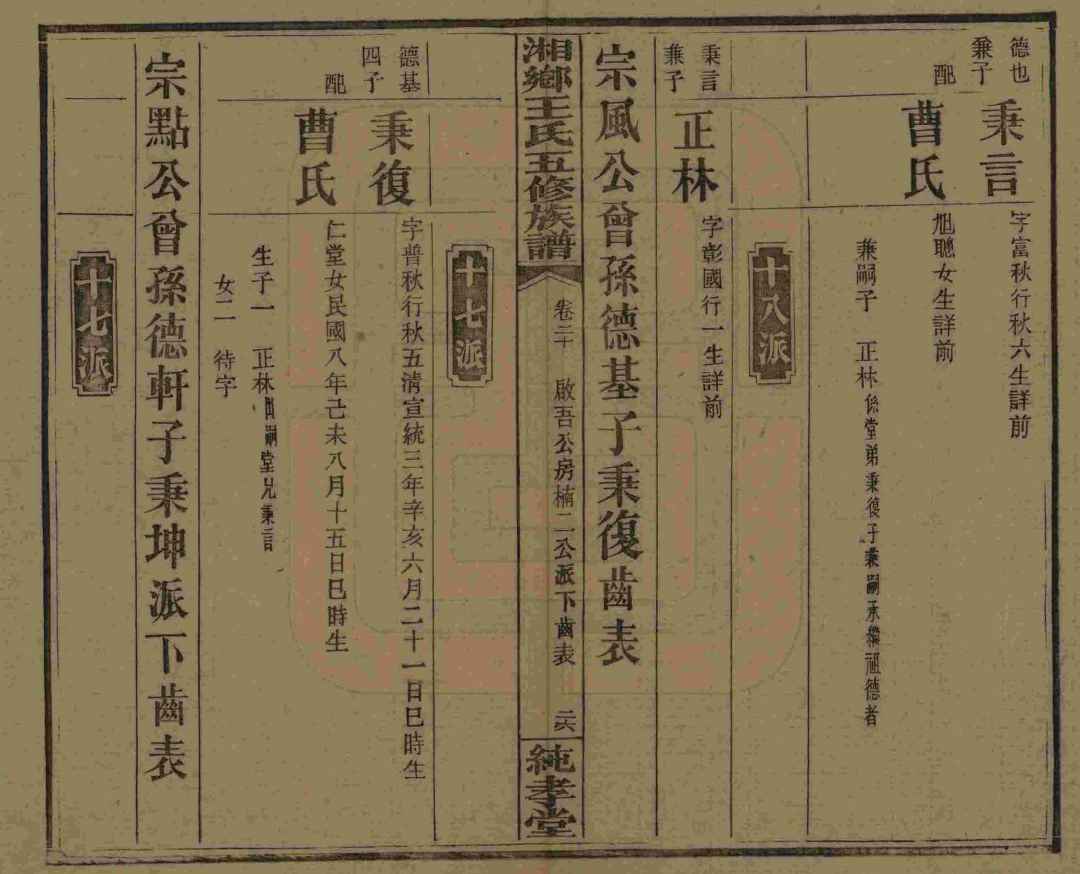 德也
兼子
秉言
字富秋行秋六生詳前
配
曹氏
旭聰女生詳前
兼嗣子 正林係堂弟秉復子兼嗣承櫟祖德者
十八派
秉言
兼子
正林
字彰國行一生詳前
宗風公曾孫德基子秉復齒表
湘鄉王氏五修族譜
卷二十 啟吾公房楠二公派下齒表 二六
純孝堂
十七派
德基
四子
秉復
字普秋行秋五清宣統三年辛亥六月二十一日巳時生
配
曹氏
仁堂女民國八年己未八月十五日巳時生
生子一 正林兼嗣堂兄秉言
女二 待字
宗點公曾孫德軒子秉坤派下齒表
十七派